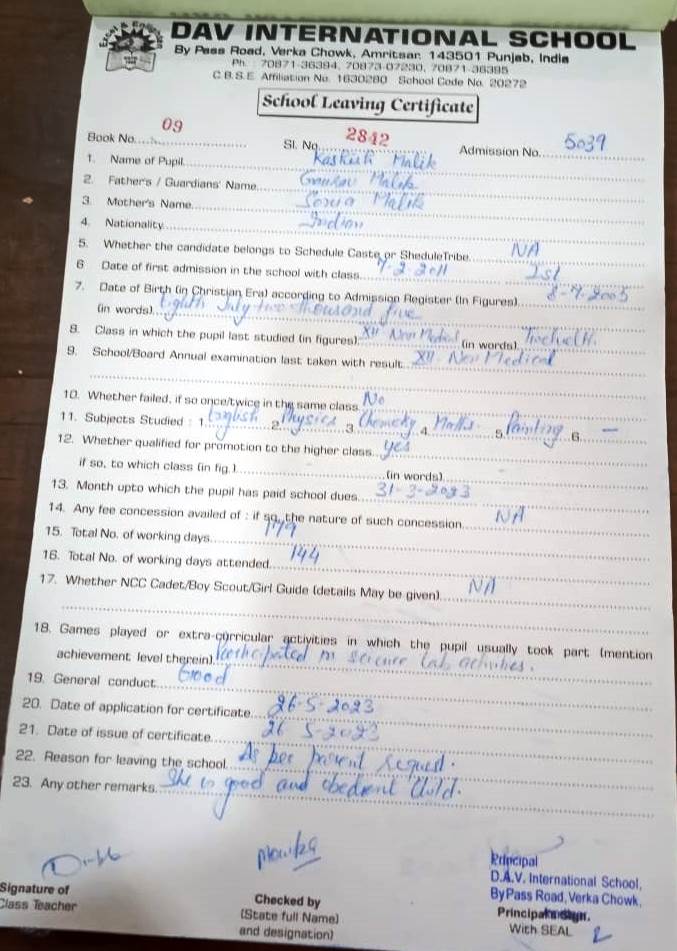 DAV INTERNATIONAL SCHOOL
By Pass Road, Verka Chowk, Amritsar. 143501 Punjab, India
Ph. : 70871-36394, 70873-07230, 70871-36395
C.B.S.E. Affiliation No. 1630280 School Code No. 20272
School Leaving Certificate
Book No. 09 Sl. No. 2842 Admission No. 5039
1. Name of Pupil Malik
2. Father's / Guardians' Name Gaurav Malik
3. Mother's Name Sonia Malik
4. Nationality Indian
5. Whether the candidate belongs to Schedule Caste or SheduleTribe NA
6 Date of first admission in the school with class 7-2-2011 Ist
7. Date of Birth (in Christian Era) according to Admission Register (in Figures) 8-7-2005
(in words) Eighth July two thousand five
8. Class in which the pupil last studied (in figures) XII Non Medical (in words)
9. School/Board Annual examination last taken with result XII Non Medical
10. Whether failed, if so once/twice in the same class No
11. Subjects Studied : 1. English 2. Physics 3. 4. Maths 5. Painting 6. —
12. Whether qualified for promotion to the higher class yes
if so, to which class (in fig.) (in words)
13. Month upto which the pupil has paid school dues 31-3-2023
14. Any fee concession availed of : if so, the nature of such concession NA
15. Total No. of working days 179
16. Total No. of working days attended 144
17. Whether NCC Cadet/Boy Scout/Girl Guide (details May be given) NA
18. Games played or extra-curricular activities in which the pupil usually took part (mention
achievement level therein) Participated in science lab activities.
19. General conduct Good
20. Date of application for certificate 26-5-2023
21. Date of issue of certificate 26 5-2023
22. Reason for leaving the school As per parent request.
23. Any other remarks She is good and obedient child.
Signature of
Class Teacher
Checked by
(State full Name)
and designation)
Principal
D.A.V. International School,
By Pass Road, Verka Chowk,
Principal
With SEAL